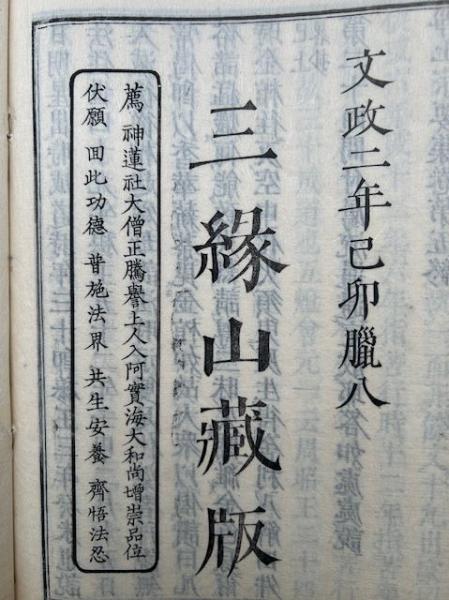 文政二年己卯臘八
三緣山藏版
薦 神蓮社大僧正騰譽上人入阿實海大和尚增崇品位
伏願 回此功德 普施法界 共生安養 齊悟法忍